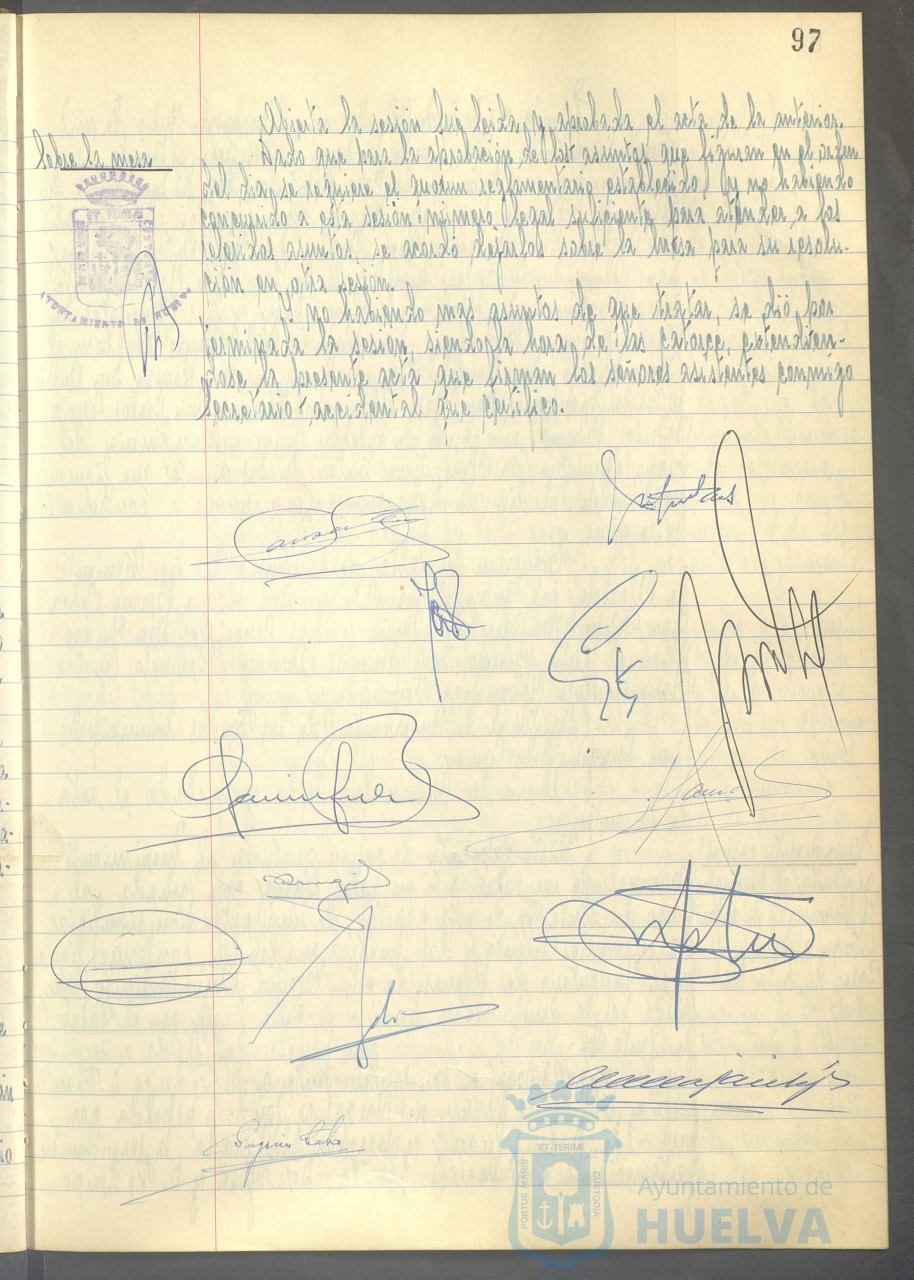 97
Abierta la sesión fue leida y aprobada el acta de la anterior.
Sobre la mesa
Dado que para la aprobación de los asuntos que figuran en el orden
del dia, se requiere el quorum reglamentario establecido, y no habiendo
concurrido a esta sesión número legal suficiente para atender a los
referidos asuntos, se acordó dejarlos sobre la mesa para su resolu-
ción en otra sesión.
Y no habiendo mas asuntos de que tratar, se dió por
terminada la sesión, siendo la hora de las catorce, extendien-
dose la presente acta que firman los señores asistentes conmigo
Secretario accidental que certifico.
AYUNTAMIENTO DE HUELVA
PORTUS MARIS
ET TERRÆ
CUSTODIA
Ayuntamiento de
HUELVA